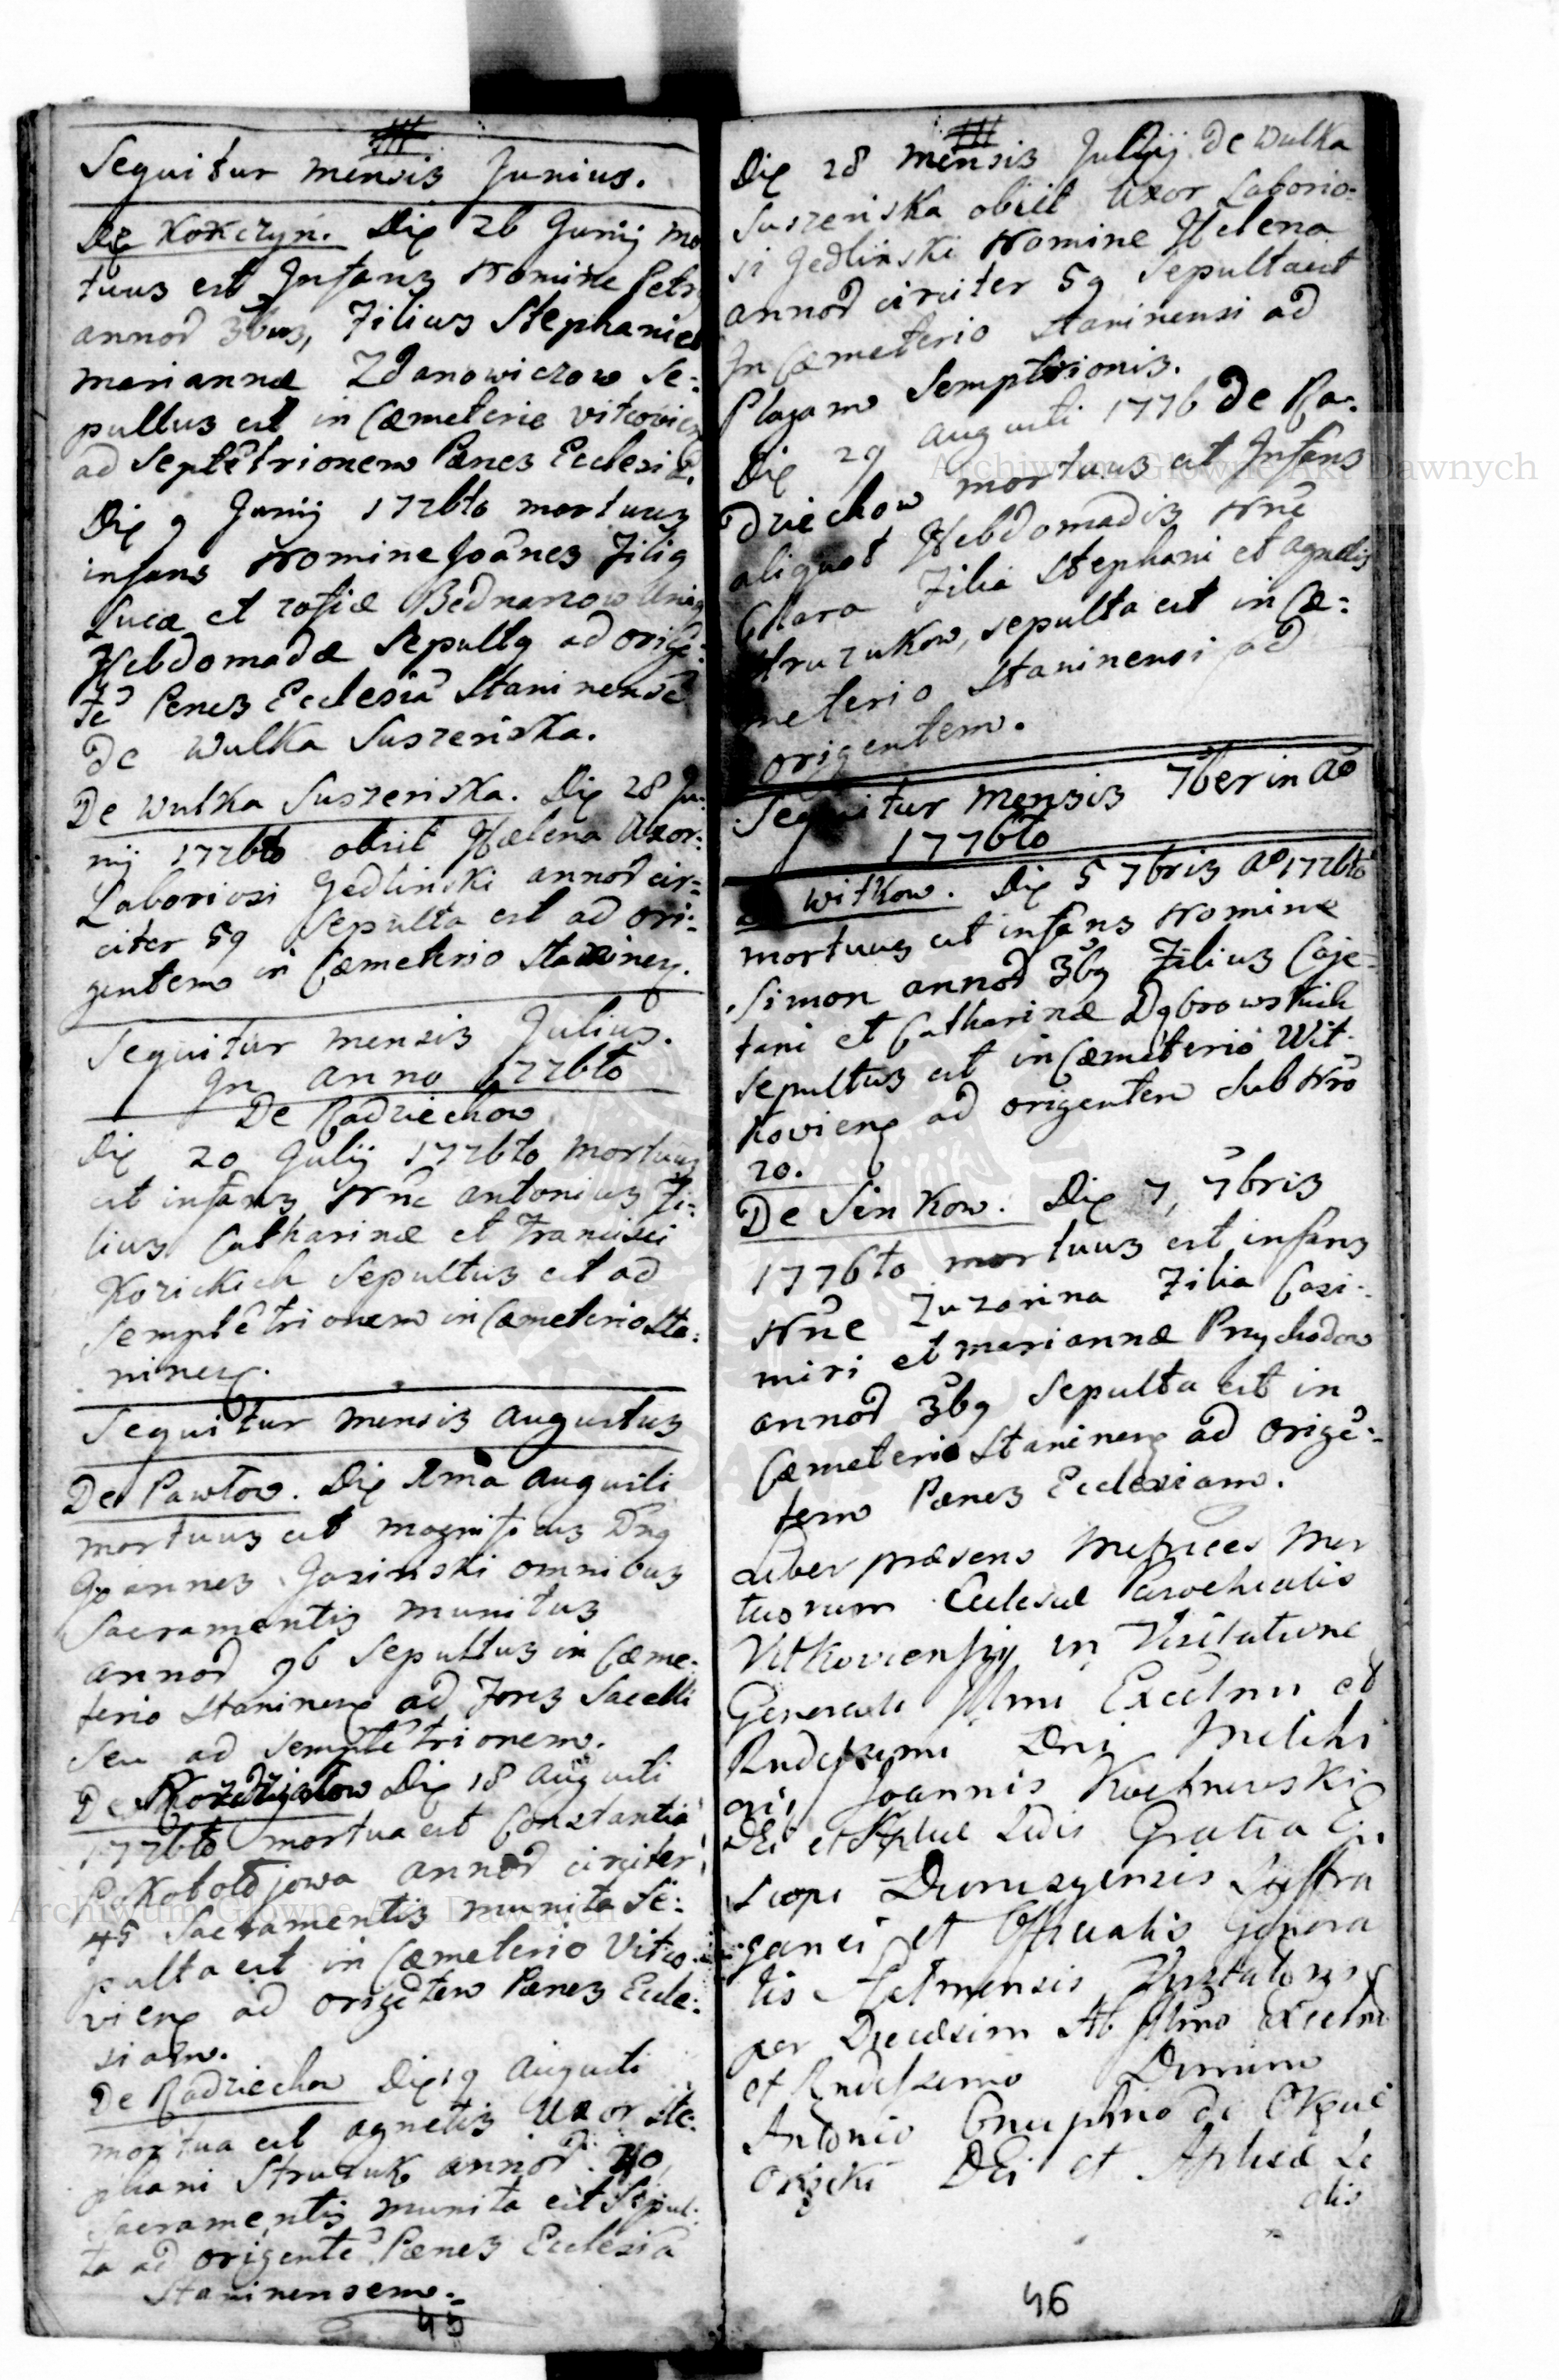 Sequitur mensis Junius.
De Kończyn. Die 26 Junij mor
tuus est Infans Nomine Petr
annor 3bus, Filius Stephani et
mariannæ Zdanowiczow Se:
pultus est in Cæmeterio vitcovien
ad Septētrionem Pænes Ecclesiā.
Die 9 Junij 1776to mortuus
infans Nomine Joānes Filig
Lucæ et zofiæ Bednarzow Unig
Hebdomadæ Sepultg ad origē:
tē Penes Ecclesiā Staninensē
De Wulka Suszeriska.
De Wulka Suszeriska. Die 28 Ju:
nij 1776to obiit Hælena Uxor:
Laboriosi Jedlinski annor cir:
citer 59 Sepulta est ad ori:
gentem in Cæmeterio Staninen.
Sequitur mensis Julius.
In anno 1776to
De Radziechow
Die 20 Julij 1776to mortuus
est infans Nñe antonius Fi:
lius Catharinæ et Francisci
Kozickich Sepultus est ad
Semptētrionem in Cæmeterio Sta:
ninen.
Sequitur mensis augustus
De Pawłow. Die 1ma augusti
mortuus est magnificus Dng
Joannes Jasinski omnibus
Sacramentis munitus
annor 96 Sepultus in Cæme:
terio Staninen ad Fores Sacelli
Seu ad Semptētrionem.
De Die 18 augusti
1776to mortua est Constantia
annor circiter
45 Sacramentis munita Se:
pulta est in Cæmeterio Vitco:
vien ad origētem Pænes Eccle:
siam.
De Radziechow Die 19 augusti
mortua est agnetis Uxor Ste:
phani Struzuk annor. 40
Sacramentis munita est Sepul:
ta ad origentē Pænes Ecclesiā
Staninensem.
45
Die 28 mensis Julij De Wulka
Suszeriska obiit Uxor Laborio:
si Jedlinski Nomine Helena
annor circiter 59 Sepulta est
In Cæmeterio Staninensi ad
Plagam Semptrionis.
Die 29 augusti 1776 De Ra:
dziechow mortuus est Infans
aliquot Hebdomadis Nñe
Clara Filia Stephani et agnetis
Struzukow, sepulta est in Cæ:
meterio Staninensi ad
origentem.
Sequitur mensis 7ber in Ao
1776to
De Witkow. Die 5 7bris Ao 1776to
mortuus est infans Nomine
Simon annor 3bg Filius Caje:
tani et Catharinæ Dąbrowskich
Sepultus est in Cæmeterio Wit:
kovien ad origentem Sub Nro
20.
De Sinkow. Die 7, 7bris
1776to mortuus est infans
Nñe Zuzanna Filia Casi:
miri et mariannæ Przychodow
annor 3bg Sepulta est in
Cæmeterio Staninen ad Origē:
tem Pænes Ecclesiam.
Liber præsens Metrices Mor
tuorum Ecclesiæ Parochialis
Vitkoviensis in Visitatione
Generali Illmi Excellmi et
Rndissimi Dni Melchi
ori, Joannis Kochnowski
Dei et Aplicæ Sedis Gratia Epi
scopi Suffra
ganei et Officialis Genera
lis Visitatoris
per Diecesim Ab Illmo Excellmo
et Rndissimo Domino
Antonio Onuphrio de Okęcie
Okęcki Dei et Aplicæ Se
dis
46
Archiwum Główne Akt Dawnych
Archiwum Główne Akt Dawnych